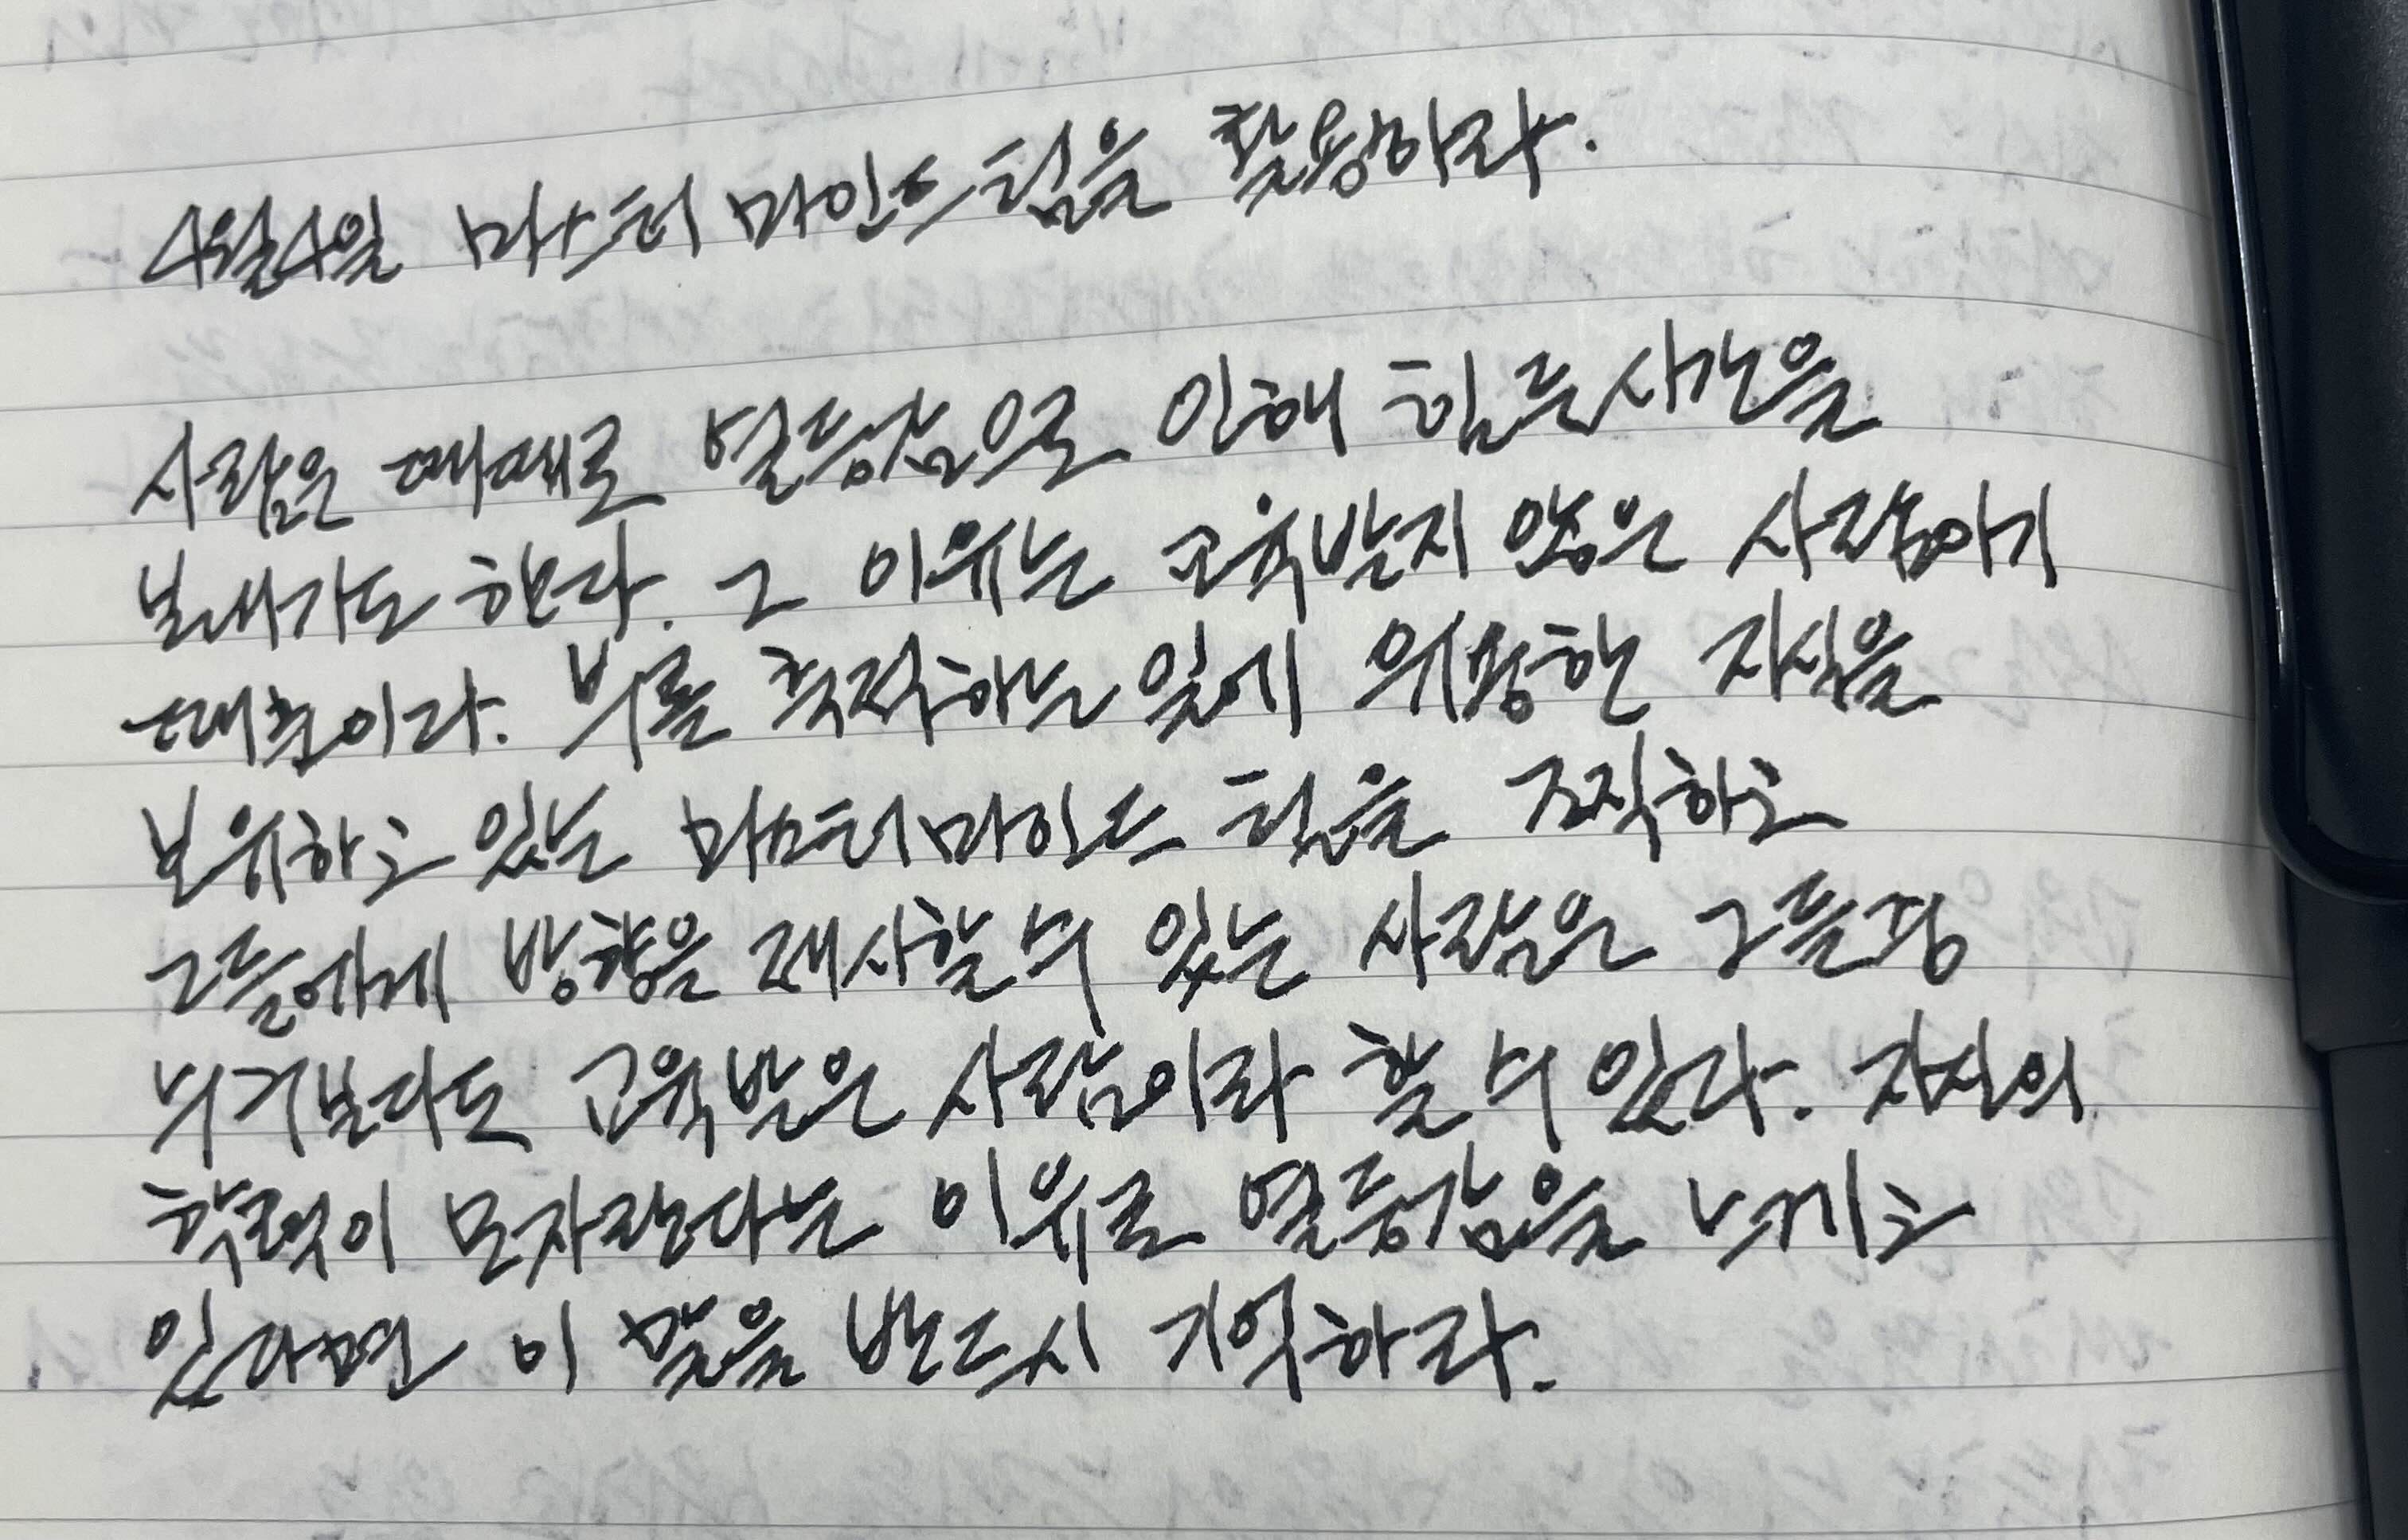 4월4일 마스터 마인드 팀을 활용하라.
사람은 때때로 열등감으로 인해 힘든 시간을
보내기도 한다. 그 이유는 교육받지 않은 사람이기
때문이다. 부를 축적하는 일에 유용한 지식을
보유하고 있는 마스터마인드 팀을 조직하고
그들에게 방향을 제시할 수 있는 사람은 그들 중
누구보다도 교육받은 사람이라 할 수 있다. 자신의
학력이 모자란다는 이유로 열등감을 느끼고
있다면 이 말을 반드시 기억하라.